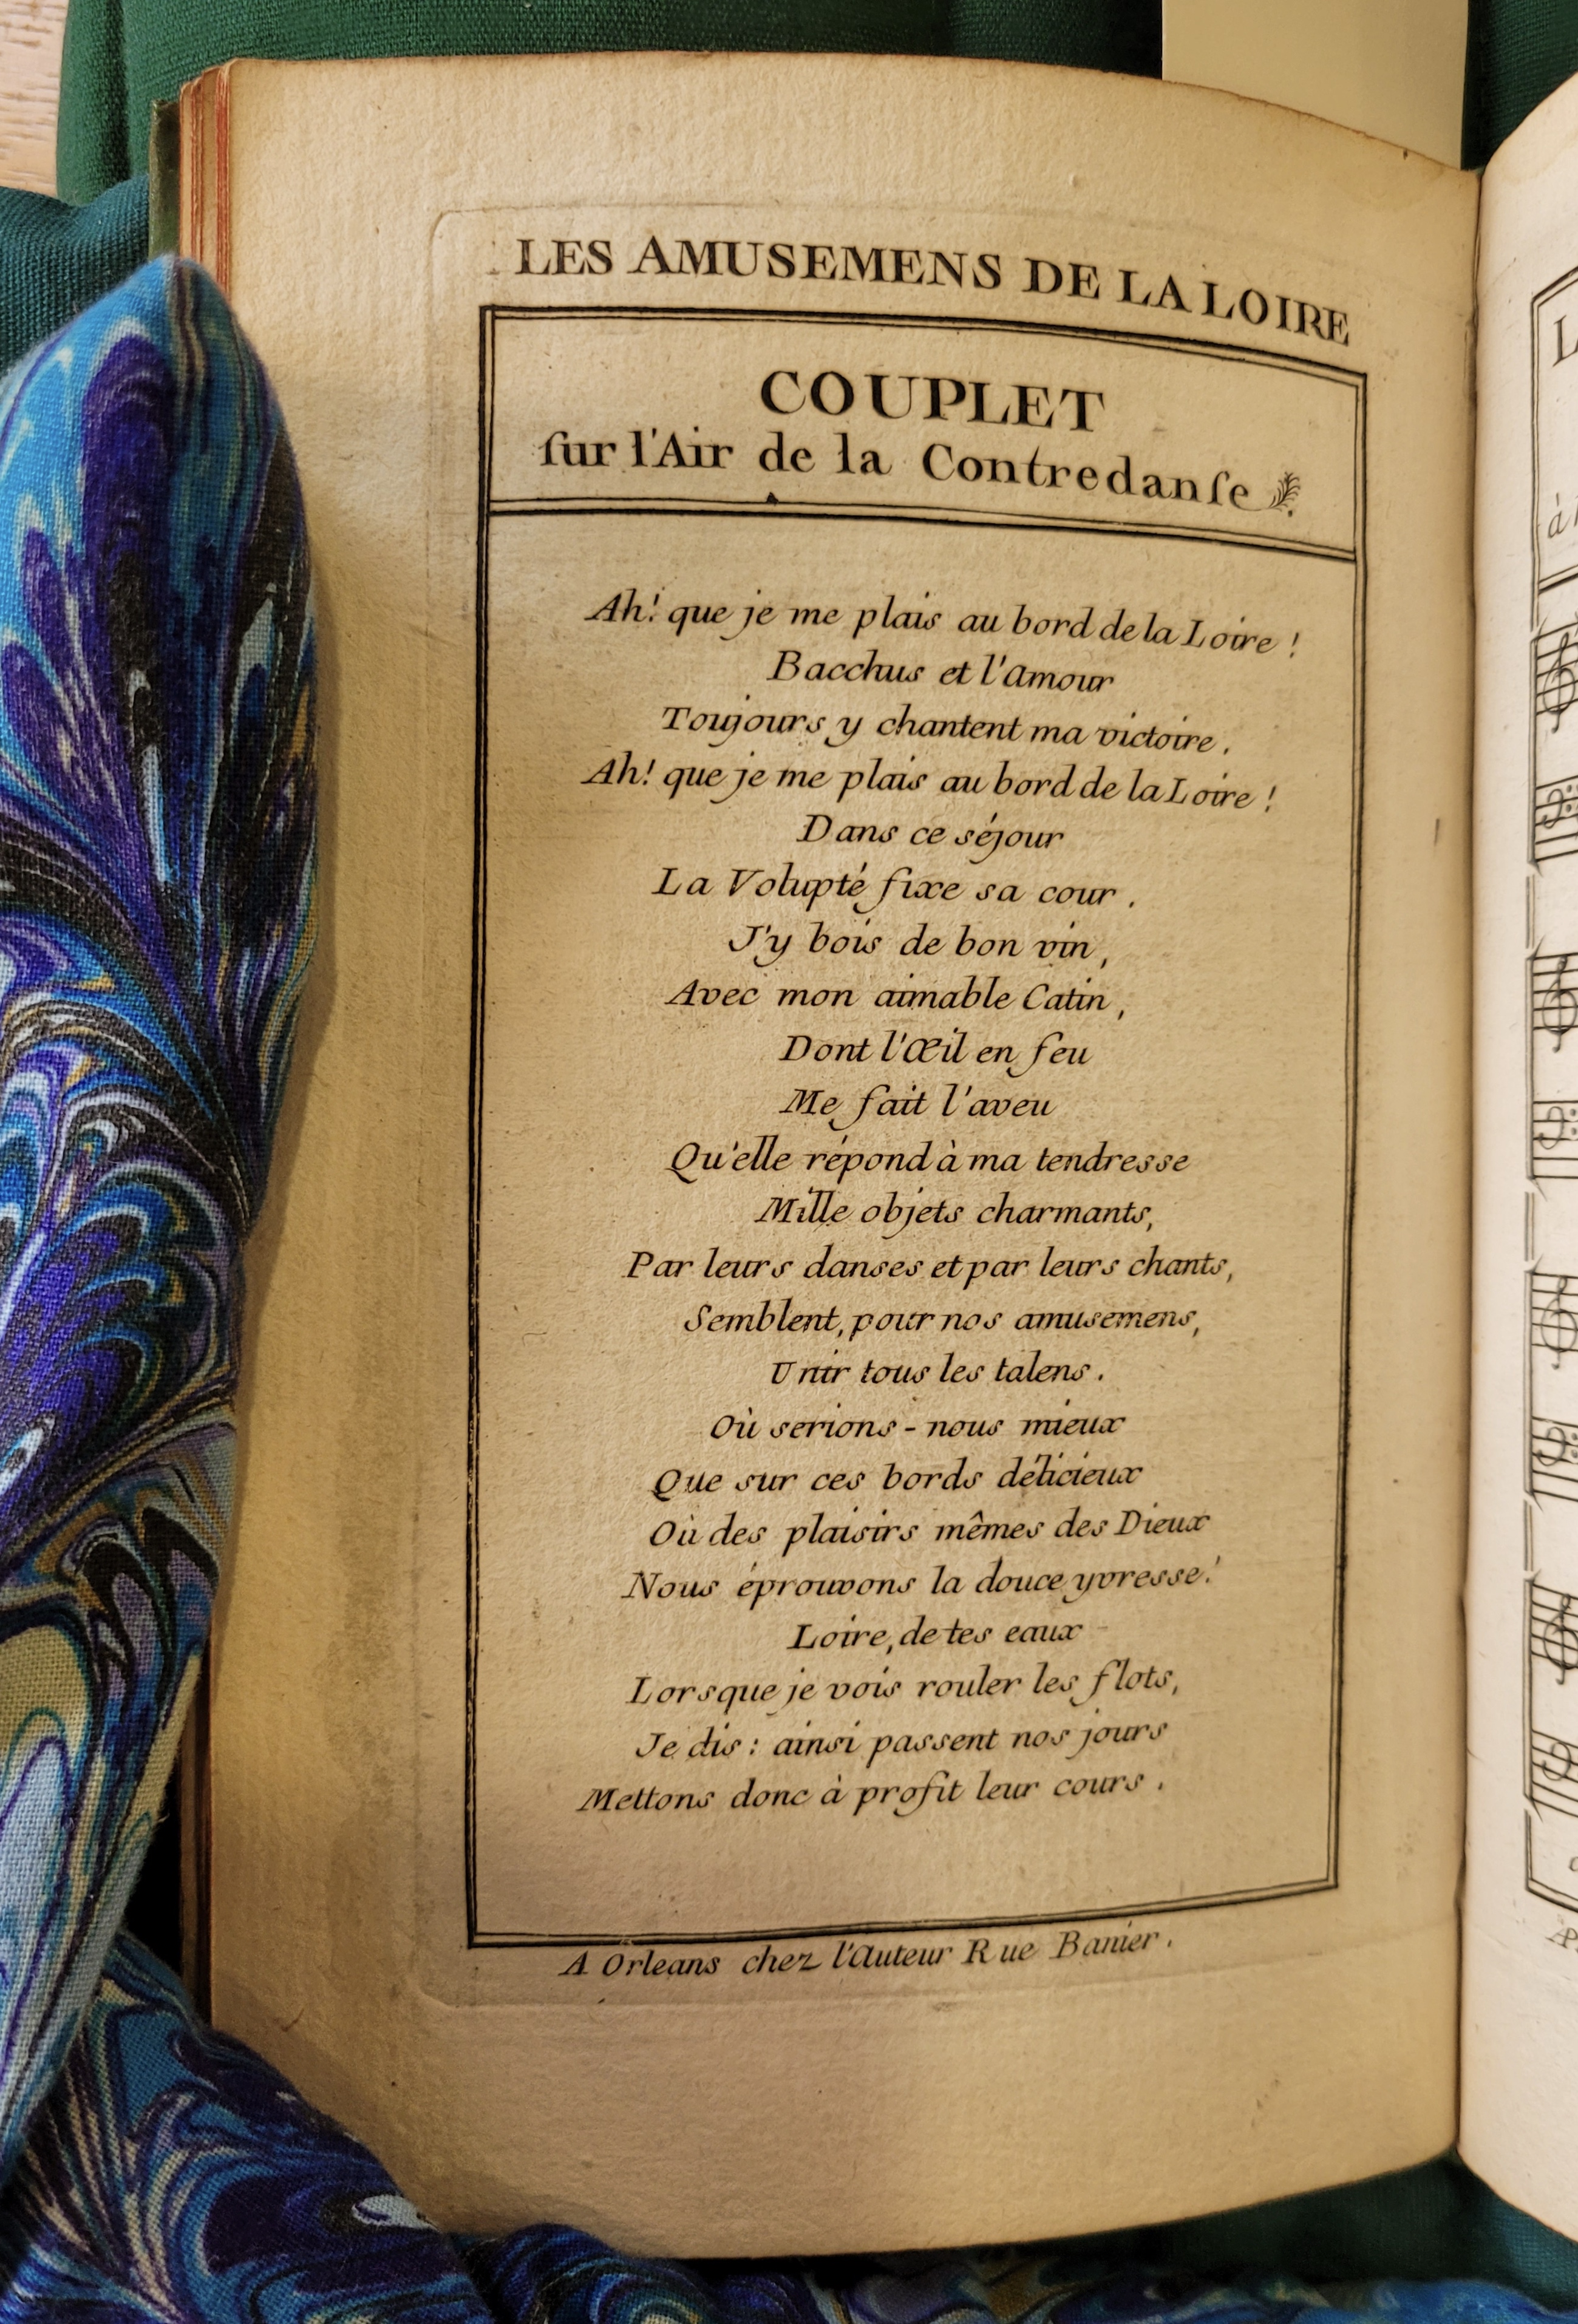 LES AMUSEMENS DE LA LOIRE
COUPLET
ſur l'Air de la Contredanſe
Ah! que je me plais au bord de la Loire !
Bacchus et l'Amour
Toujours y chantent ma victoire.
Ah! que je me plais au bord de la Loire !
Dans ce séjour
La Volupté fixe sa cour.
J'y bois de bon vin,
Avec mon aimable Catin,
Dont l'Œil en feu
Me fait l'aveu
Qu'elle répond à ma tendresse
Mille objets charmants,
Par leurs danses et par leurs chants,
Semblent, pour nos amusemens,
Unir tous les talens.
Où serions-nous mieux
Que sur ces bords délicieux
Où des plaisirs mêmes des Dieux
Nous éprouvons la douce yvresse!
Loire, de tes eaux
Lorsque je vois rouler les flots,
Je dis : ainsi passent nos jours
Mettons donc à profit leur cours.
A Orleans chez l'Auteur Rue Banier.